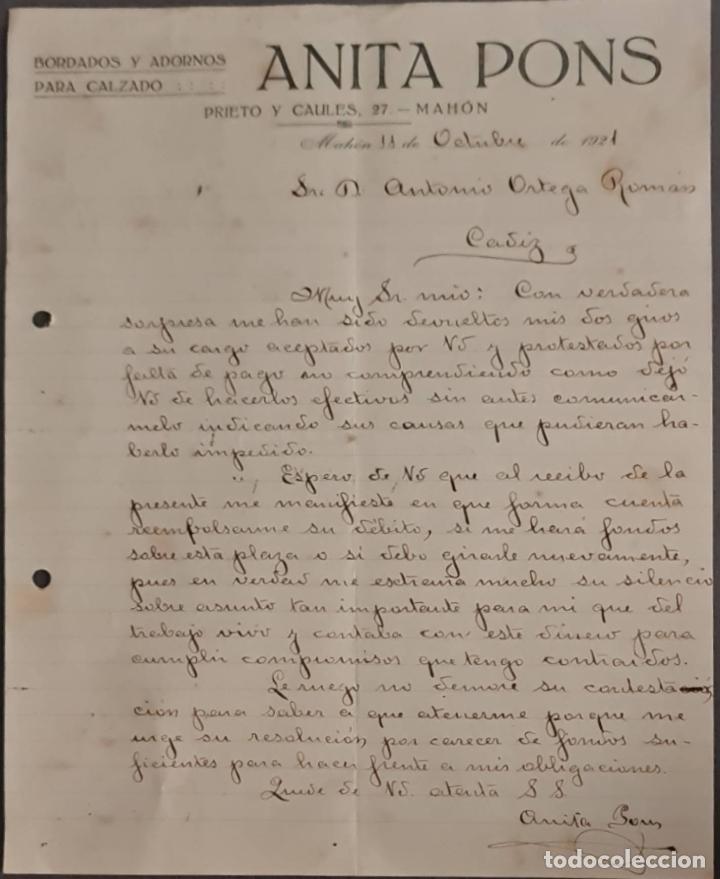 BORDADOS Y ADORNOS
PARA CALZADO : : : :
ANITA PONS
PRIETO Y CAULES, 27. - MAHÓN
Mahón 11 de Octubre de 1921
Sr. D. Antonio Ortega Román
Cadiz
Muy Sr. mio: Con verdadera
sorpresa me han sido devueltos mis dos giros
a su cargo aceptados por Vd y protestados por
falta de pago no comprendiendo como dejó
Vd de hacerlos efectivos sin antes comunicar-
melo indicando sus causas que pudieran ha-
berlo impedido.
Espero de Vd que al recibo de la
presente me manifieste en que forma cuenta
reembolsarme su débito, si me hará fondos
sobre esta plaza o si debo girarle nuevamente,
pues en verdad me extraña mucho su silencio
sobre asunto tan importante para mi que del
trabajo vivo y contaba con este dinero para
cumplir compromisos que tengo contraidos.
Le ruego no demore su contesta
ción para saber a que atenerme porque me
urge su resolución por carecer de fondos su-
ficientes para hacer frente a mis obligaciones.
Queda de Vd. atenta S S
Anita Pons
todocoleccion